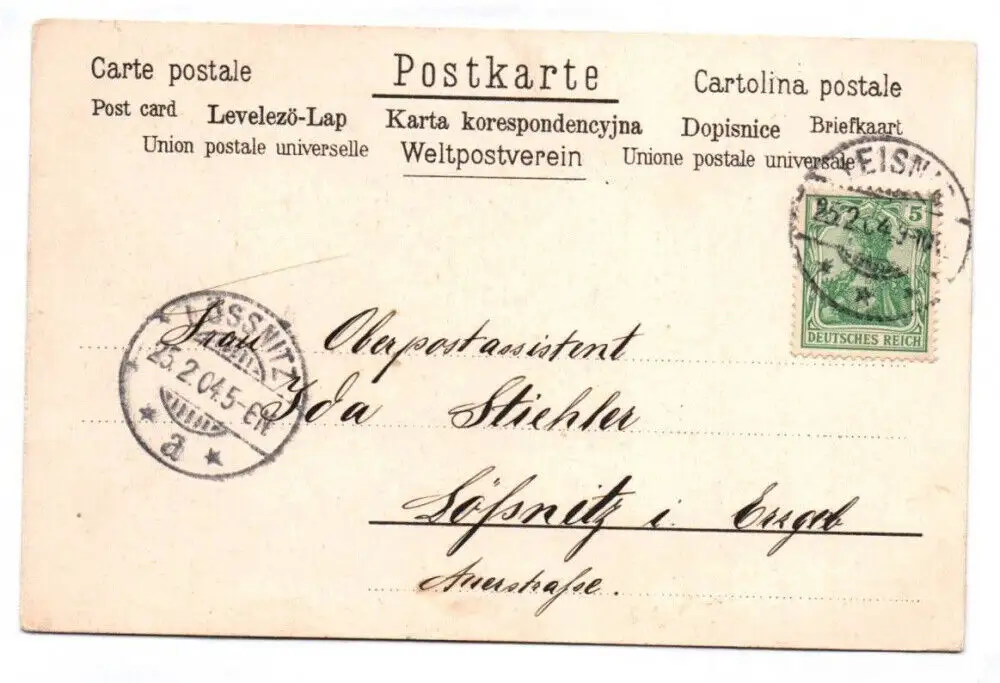 Carte postale Postkarte Cartolina postale
Post card Levelezö-Lap Karta korespondencyjna Dopisnice Briefkaart
Union postale universelle Weltpostverein Unione postale universale
LEISNIG
25.2.04.
5
DEUTSCHES REICH
LÖSSNITZ
25.2.04.5-6N.
a
Frau Oberpostassistent
Ida Stiehler
Lößnitz i. Erzgeb
Auerstraße.